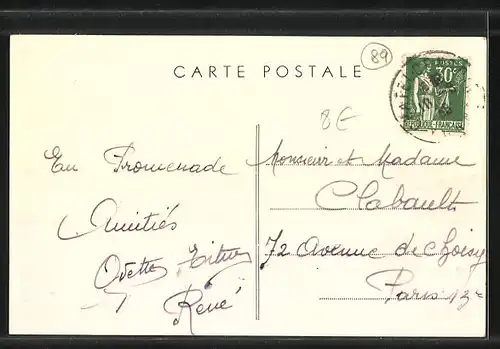 89
CARTE POSTALE
POSTES
30c
REPUBLIQUE FRANÇAISE
8€
En Promenade
Amitiés
Odette
René
Monsieur et Madame
Clabault
72 Avenue de Choisy
Paris 13e